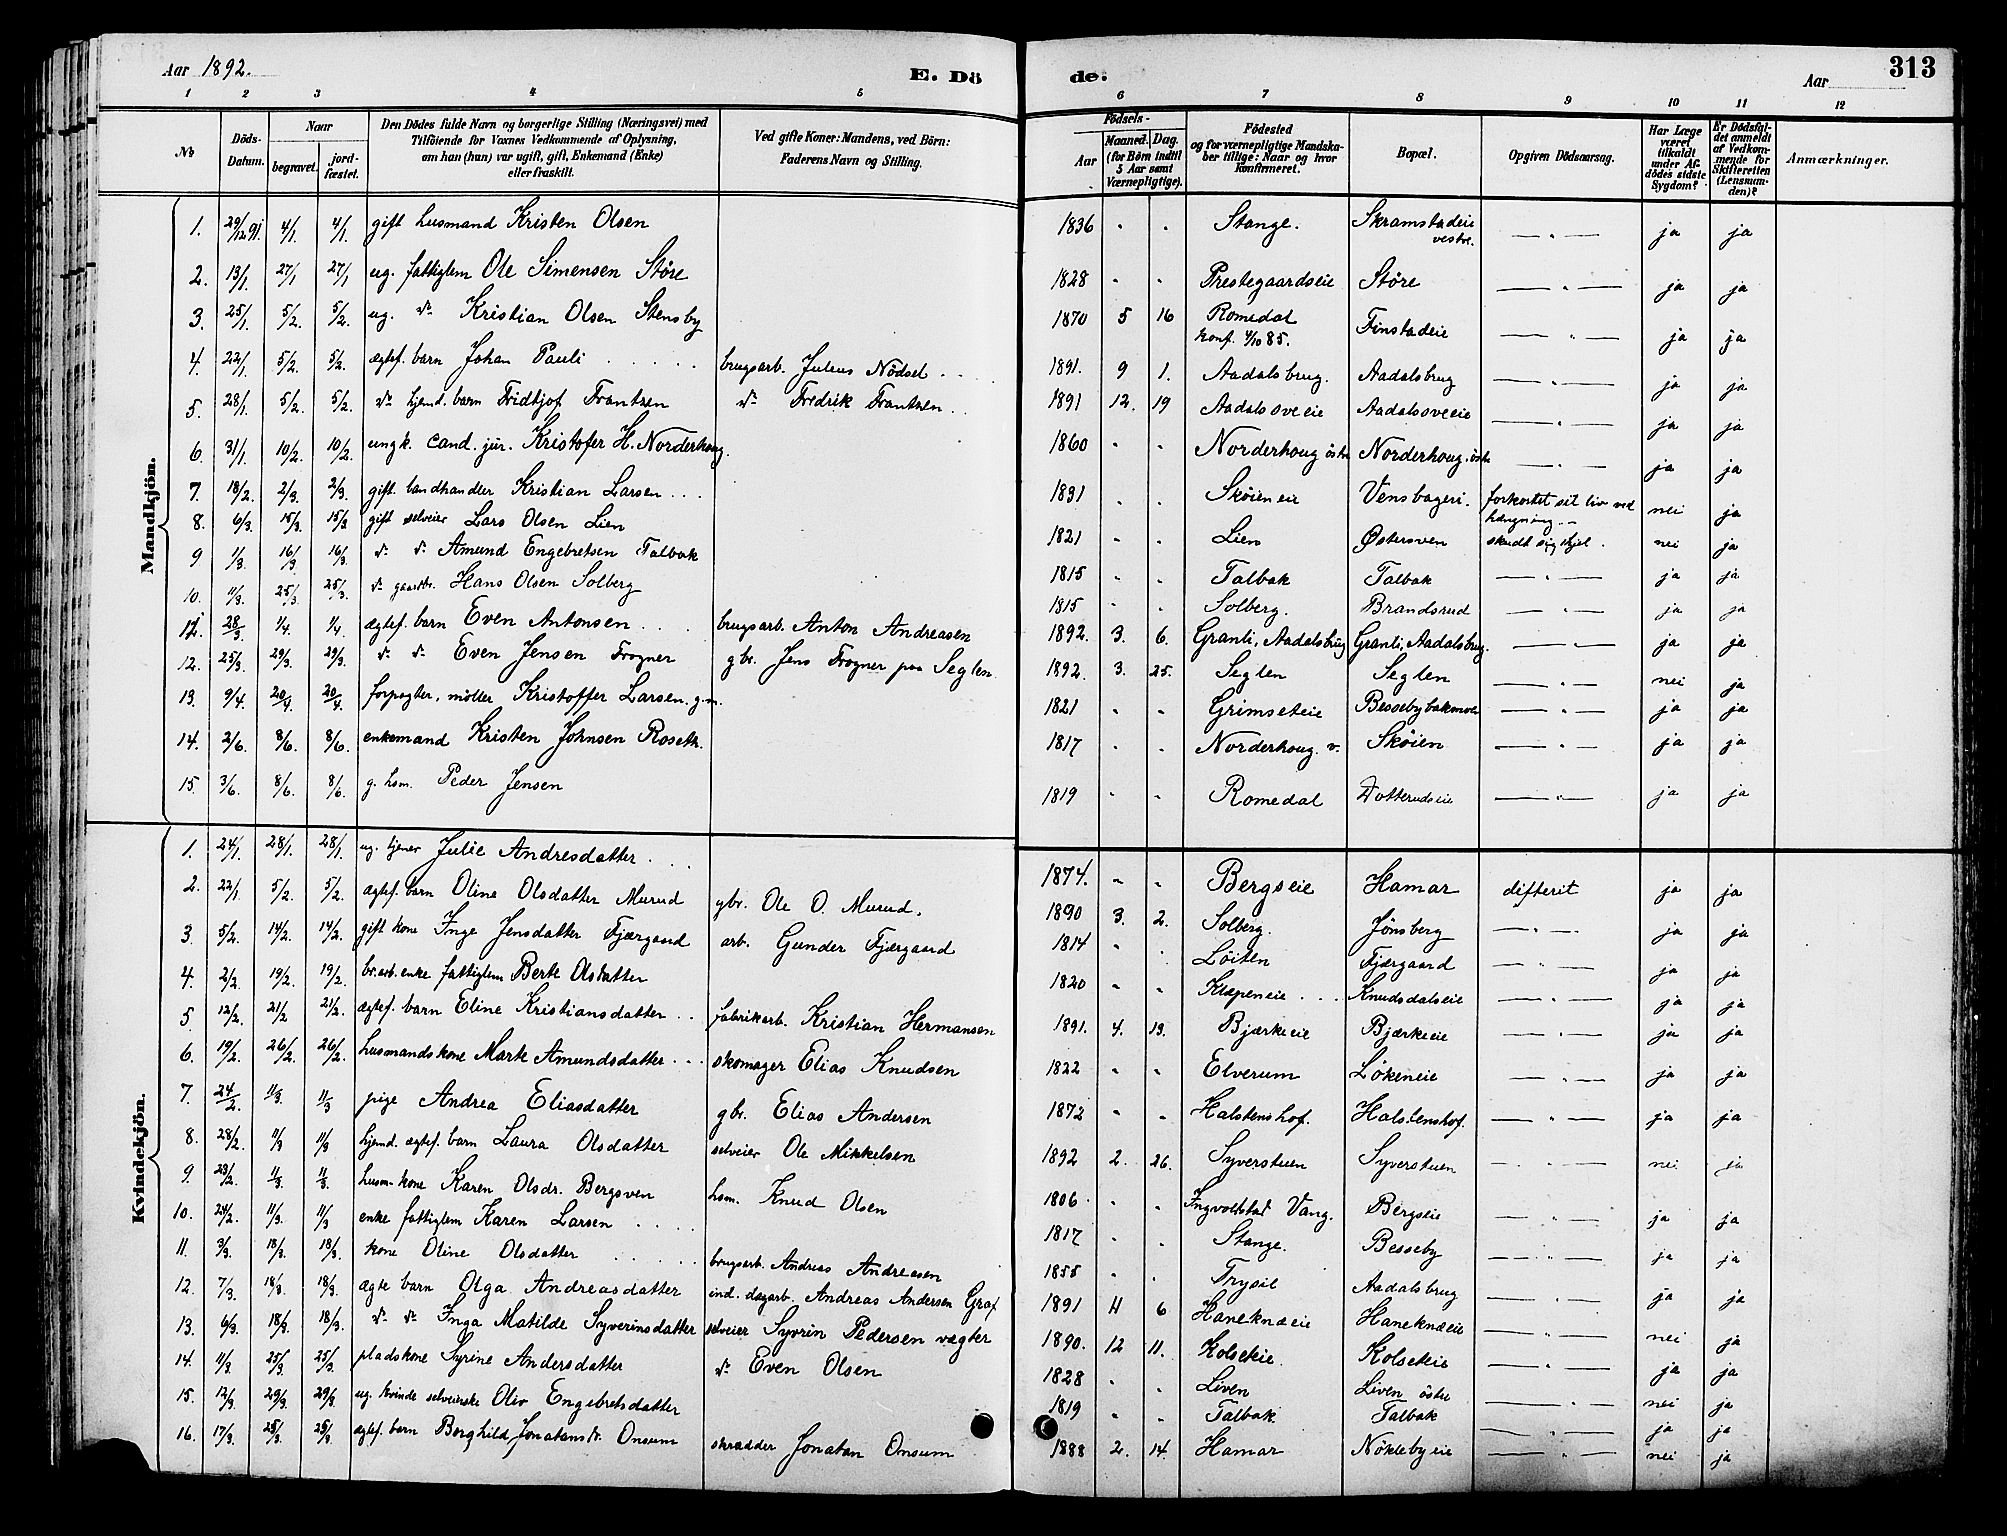 Aar 1892. E. Dö de. Aar 313
1 2 3 4 5 6 7 8 9 10 11 12
No. Döds-Datum. Naar begravet. jord-fæstet. Den Dödes fulde Navn og borgerlige Stilling (Næringsvei) med Tilföiende for Voxnes Vedkommende af Oplysning, om han (hun) var ugift, gift, Enkemand (Enke) eller fraskilt. Ved gifte Koner: Mandens, ved Börn: Faderens Navn og Stilling. Födsels- Aar Maaned. Dag. (for Börn indtil 5 Aar samt Værnepligtige). Födested og for værnepligtige Mandskaber tillige: Naar og hvor konfirmeret. Bopæl. Opgiven Dödsaarsag. Har Læge været tilkaldt under Afdödes sidste Sygdom? Er Dödsfaldet anmeldt af Vedkommende for Skifteretten (Lensmanden)? Anmærkninger.
Mandkjön.
1. 29/12 91. 4/1. 4/1. gift husmand Kristen Olsen 1836 " " Stange. Skramstadeie vestre. — " — ja ja
2. 13/1. 27/1 27/1 ug. fattiglem Ole Simensen Störe 1828 " " Prestegaardseie Störe — " — ja ja
3. 25/1. 5/2. 5/2. ug. do Kristian Olsen Stensby 1870 5 16 Romedal konf. 4/10 85. Finstadeie — " — ja ja
4. 22/1. 5/2. 5/2. ægtef. barn Johan Pauli brugsarb. Julius Nödsel 1891. 9 1. Aadalsbrug. Aadalsbrug — " — ja ja
5. 28/1. 5/2. 5/2. do hjemd. barn Fridtjof Frantzen do Fredrik Frantzen 1891 12. 19 Aadalsoveeie Aadalsoveeie — " — ja ja
6. 31/1. 10/2. 10/2. ungk. cand. jur. Kristofer H. Norderhoug. 1860 " " Norderhoug östre Norderhoug. östre — " — ja ja
7. 18/2. 2/3. 2/3. gift. landhandler Kristian Larsen 1831 " " Sköieneie Vensbageri. forkortet sit liv ved hængning. nei ja
8. 6/3. 15/3. 15/3 gift selveier Lars Olsen Lien 1821 " " Lien Østersven skudt sig ihjel. nei ja
9 1/3. 16/3 16/3 do do Amund Engebretsen Talbak 1815 " " Talbak Talbak — " — ja ja
10. 11/3. 25/3 25/3. do gaardbr. Hans Olsen Solberg 1815 " " Solberg. Brandsrud — " — ja ja
11. 28/3. 1/4. 1/4. ægtef. barn Even Antonsen brugsarb. Anton Andreasen 1892. 3. 6. Granli, Aadalsbrug Granli, Aadalsbrug. — " — ja ja
12. 25/3. 29/3. 29/3. do do Even Jensen Frogner gbr. Jens Frogner paa Seglen. 1892 3. 25. Seglen Seglen — " — nei ja
13. 9/4. 20/4. 20/4 forpagter, möller Kristoffer Larsen. g.m. 1821 " " Grimseteie Bessebybakmoen — " — ja ja
14. 2/6. 8/6. 8/6. enkemand Kristen Johnsen Roseth. 1817 " " Norderhoug. v. Sköien — " — ja ja
15. 3/6. 8/6. 8/6. g. hsm. Peder Jensen 1819 " " Romedal Dotterudseie — " — ja ja
Kvindekjön.
1. 24/1. 28/1. 28/1. ug. tjener Julie Andresdatter 1874. " " Bergseie Hamar difterit ja ja
2. 22/1 5/2. 5/2. ægtef. barn Oline Olsdatter Murud gbr. Ole O. Murud. 1890 3. 2. Solberg. Jönsberg — " — ja ja
3. 5/2. 14/2. 14/2. gift kone Inge Jensdatter Fjærgaard arb. Gunder Fjærgaard 1814 " " Löiten Fjærgaard — " — ja ja
4. 2/2. 19/2. 19/2. br.arb. enke fattiglem Berte Olsdatter 1820 " " Klæpeneie Knudsdalseie — " — ja ja
5 12/2. 21/2 21/2. ægtef. barn Eline Kristiansdatter fabrikarb. Kristian Hermansen 1891. 4. 13. Bjærkeeie Bjærkeeie — " — ja ja
6. 19/2. 26/2. 26/2. husmandskone Marte Amundsdatter skomager Elias Knudsen 1822 " " Elverum Lökeneie — " — ja ja
7. 24/2. 11/3. 11/3 pige Andrea Eliasdatter gbr. Elias Andersen 1872 " " Halstenshof. Halstenshof. — " — ja ja
8. 28/2. 11/3 11/3 hjemd. ægtef. barn Laura Olsdatter selveier Ole Mikkelsen 1892 2. 26. Syverstuen Syverstuen — " — nei ja
9. 23/2. 11/3. 11/3. husm. kone Karen Olsdr. Bergsven hsm. Knud Olsen 1806 " " Ingvoldstad Vang. Bergseie — " — ja ja
10. 24/2. 11/3. 11/3 enke fattiglem Karen Larsen 1817 " " Stange. Besseby — " — ja ja
11. 3/3. 18/3. 18/3. kone Oline Olsdatter brugsarb. Andreas Andreasen 1855 " " Trysil Aadalsbrug — " — ja ja
12. 7/3. 18/3. 18/3. ægte barn Olga Andreasdatter ind. dagarb. Andreas Andersen Graf 1891 11 6 Haneknæeie Haneknæeie — " — nei ja
13. 6/3. 18/3. 18/3. do do Inga Matilde Syverinsdatter selveier Syvrin Pedersen vægter 1890. 12 11. Kolseteie. Kolseteie — " — ja ja
14. 11/3. 25/3 25/3. pladskone Syrine Andersdatter do Even Olsen 1828 " " Liven Liven östre — " — nei ja
15. 12/3. 29/3. 29/3. ug. kvinde selveierske Oliv Engebretsdatter 1819 " " Talbak Talbak — " — ja ja
16. 17/3. 25/3. 25/3. ægtef. barn Borghild Jonatansdr. Onsum skrædder Jonatan Onsum 1888 2. 14. Hamar Nöklebyeie — " — nei ja